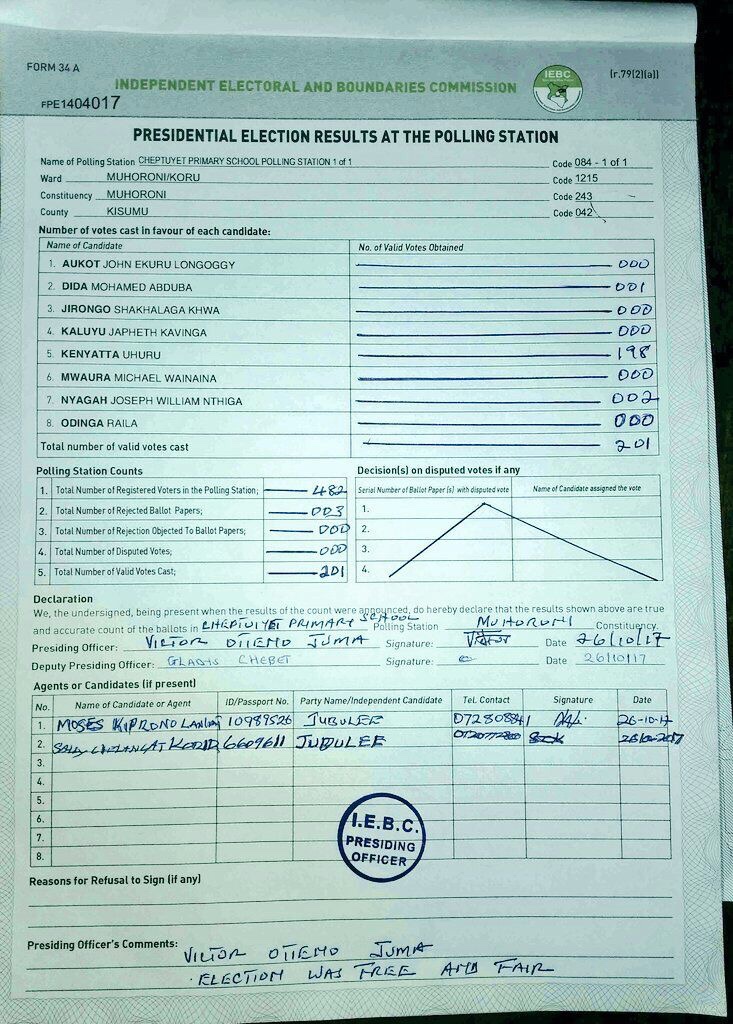 FORM 34 A
IEBC
(r.79(2)(a))
INDEPENDENT ELECTORAL AND BOUNDARIES COMMISSION
FPE1404017
PRESIDENTIAL ELECTION RESULTS AT THE POLLING STATION
Name of Polling Station CHEPTUYET PRIMARY SCHOOL POLLING STATION 1 of 1 Code 084 - 1 of 1
Ward MUHORONI/KORU Code 1215
Constituency MUHORONI Code 243
County KISUMU Code 042
Number of votes cast in favour of each candidate:
Name of Candidate No. of Valid Votes Obtained
1. AUKOT JOHN EKURU LONGOGGY 000
2. DIDA MOHAMED ABDUBA 001
3. JIRONGO SHAKHALAGA KHWA 000
4. KALUYU JAPHETH KAVINGA 000
5. KENYATTA UHURU 198
6. MWAURA MICHAEL WAINAINA 000
7. NYAGAH JOSEPH WILLIAM NTHIGA 002
8. ODINGA RAILA 000
Total number of valid votes cast 201
Polling Station Counts Decision(s) on disputed votes if any
1. Total Number of Registered Voters in the Polling Station; 482
2. Total Number of Rejected Ballot Papers; 003
3. Total Number of Rejection Objected To Ballot Papers; 000
4. Total Number of Disputed Votes; 000
5. Total Number of Valid Votes Cast; 201
Serial Number of Ballot Paper (s) with disputed vote Name of Candidate assigned the vote
1.
2.
3.
4.
Declaration
We, the undersigned, being present when the results of the count were announced, do hereby declare that the results shown above are true
and accurate count of the ballots in CHEPTUYET PRIMARY SCHOOL Polling Station MUHORONI Constituency.
Presiding Officer: VICTOR OTIENO JUMA Signature: Date 26/10/17
Deputy Presiding Officer: GLADYS CHEBET Signature: Date 26/10/17
Agents or Candidates (if present)
No. Name of Candidate or Agent ID/Passport No. Party Name/Independent Candidate Tel. Contact Signature Date
1. MOSES KIPRONO 10989526 JUBULEE 26-10-17
2. JUBULEE
3.
4.
5.
6.
7.
8.
I.E.B.C.
PRESIDING
OFFICER
Reasons for Refusal to Sign (if any)
Presiding Officer's Comments: VICTOR OTIENO JUMA
ELECTION WAS FREE AND FAIR